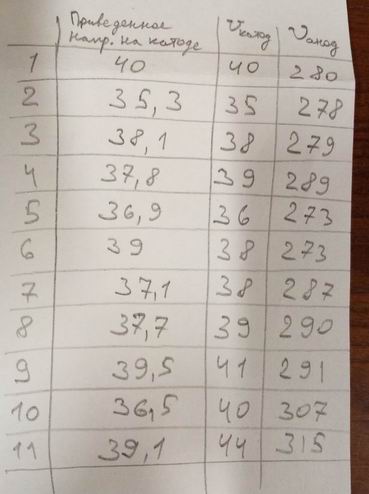 Приведенное
напр. на катоде Vкатод Vанод
1 40 40 280
2 35,3 35 278
3 38,1 38 279
4 37,8 39 289
5 36,9 36 273
6 39 38 273
7 37,1 38 287
8 37,7 39 290
9 39,5 41 291
10 36,5 40 307
11 39,1 44 315